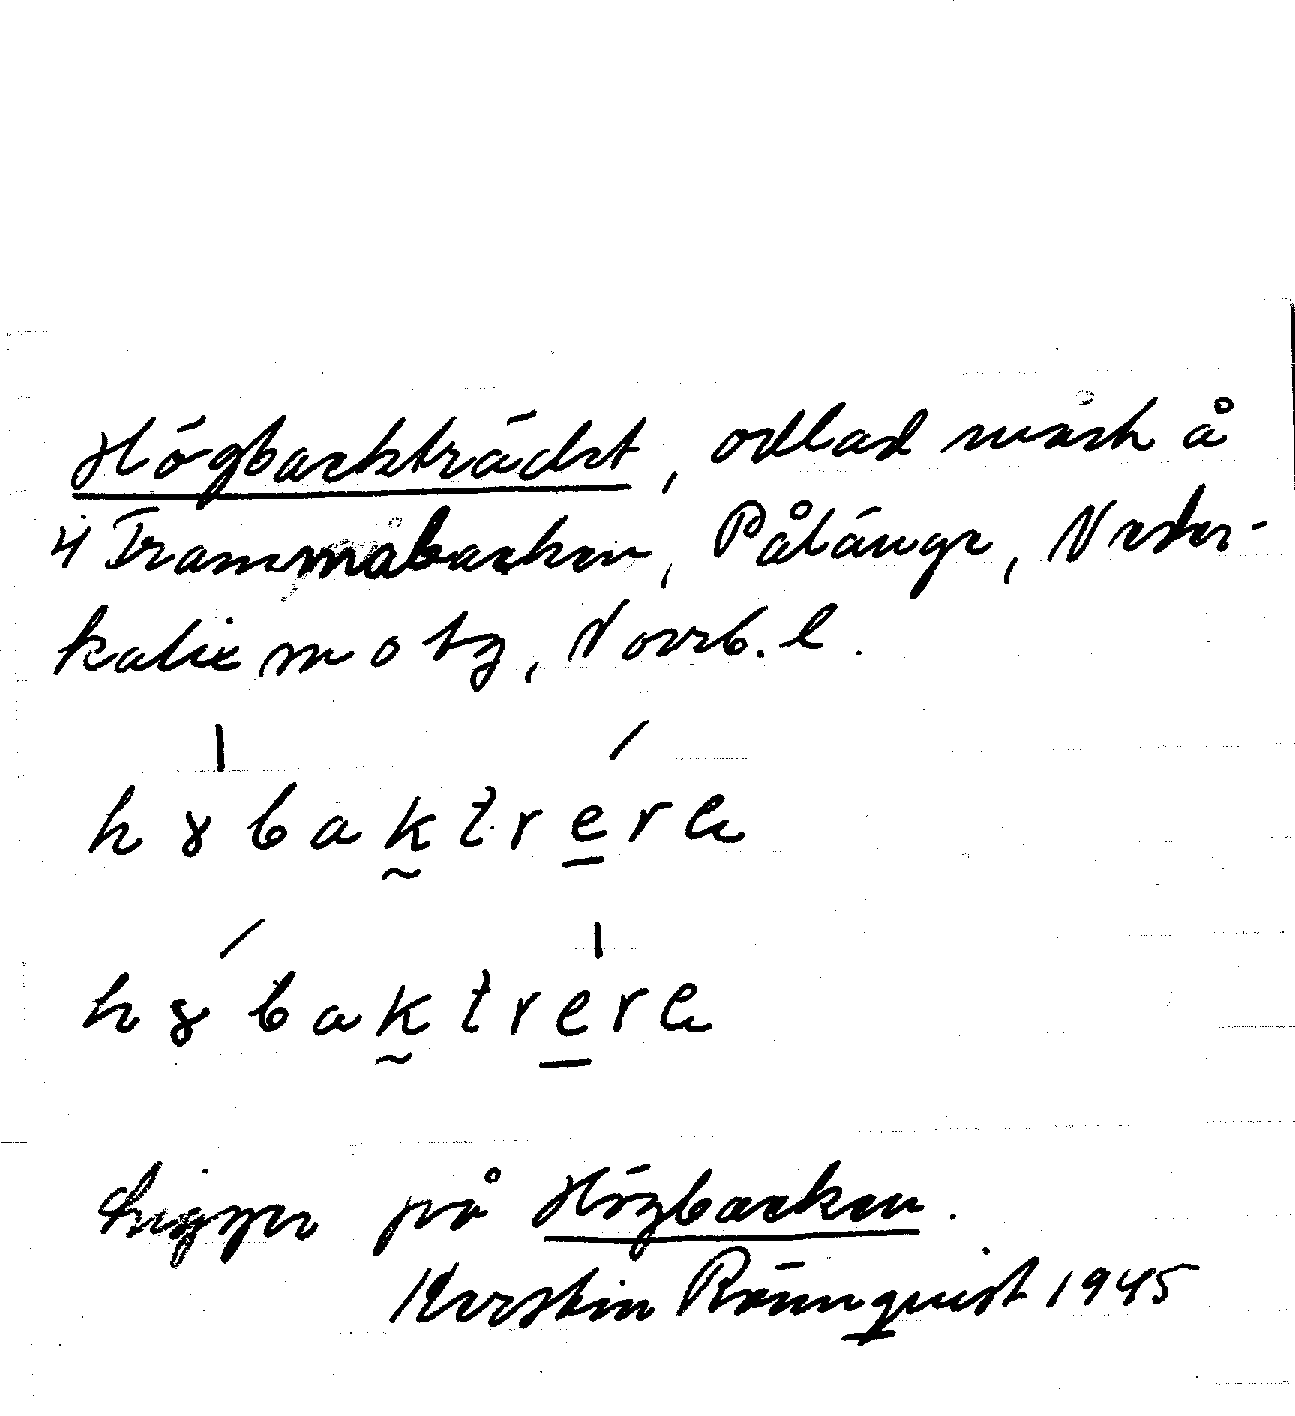 Högbackträdet, odlad mark å
4 Trammåbacken, Pålänge, Neder-
kalix m o tg, Norrb. l.
hɤbaktrere
hɤbaktrere
Ligger på Högbacken.
Kerstin Rönnquist 1945